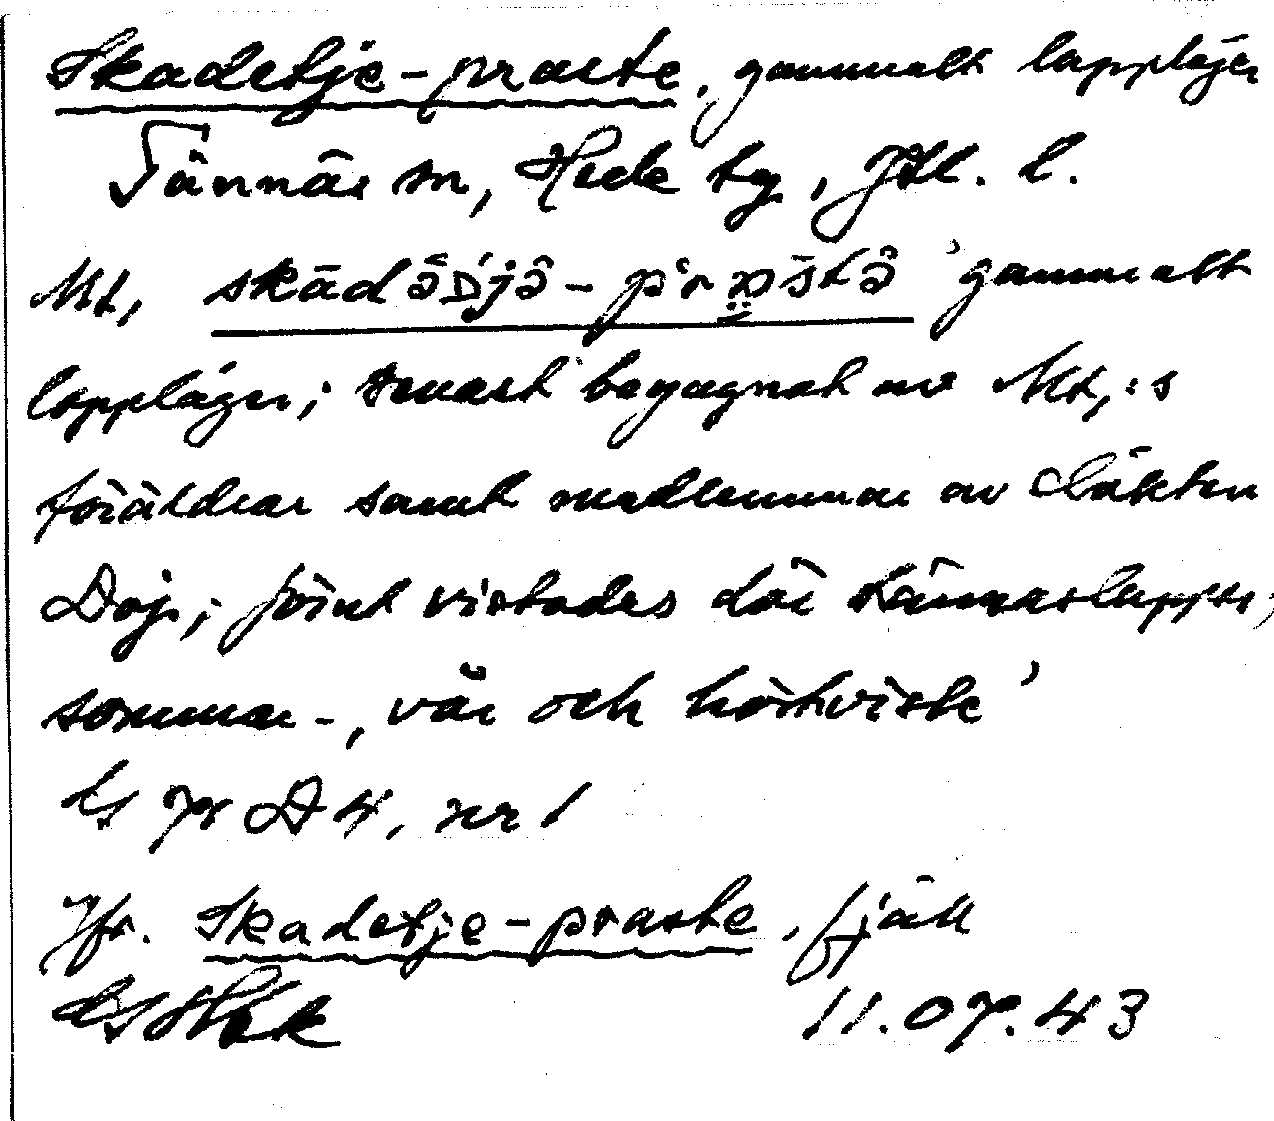 Skadetje-praste, gammalt lappläger
Tännäs sn, Hede tg, Jtl. l.
gammalt
lappläger; senast begagnat av Mt,:s
föräldrar samt medlemmar av släkten
Doj; förut vistades där tännäslappar;
sommar-, vår och höstviste'
nr 1
Jfr. Skadetje-praste, fjäll
11.07.43